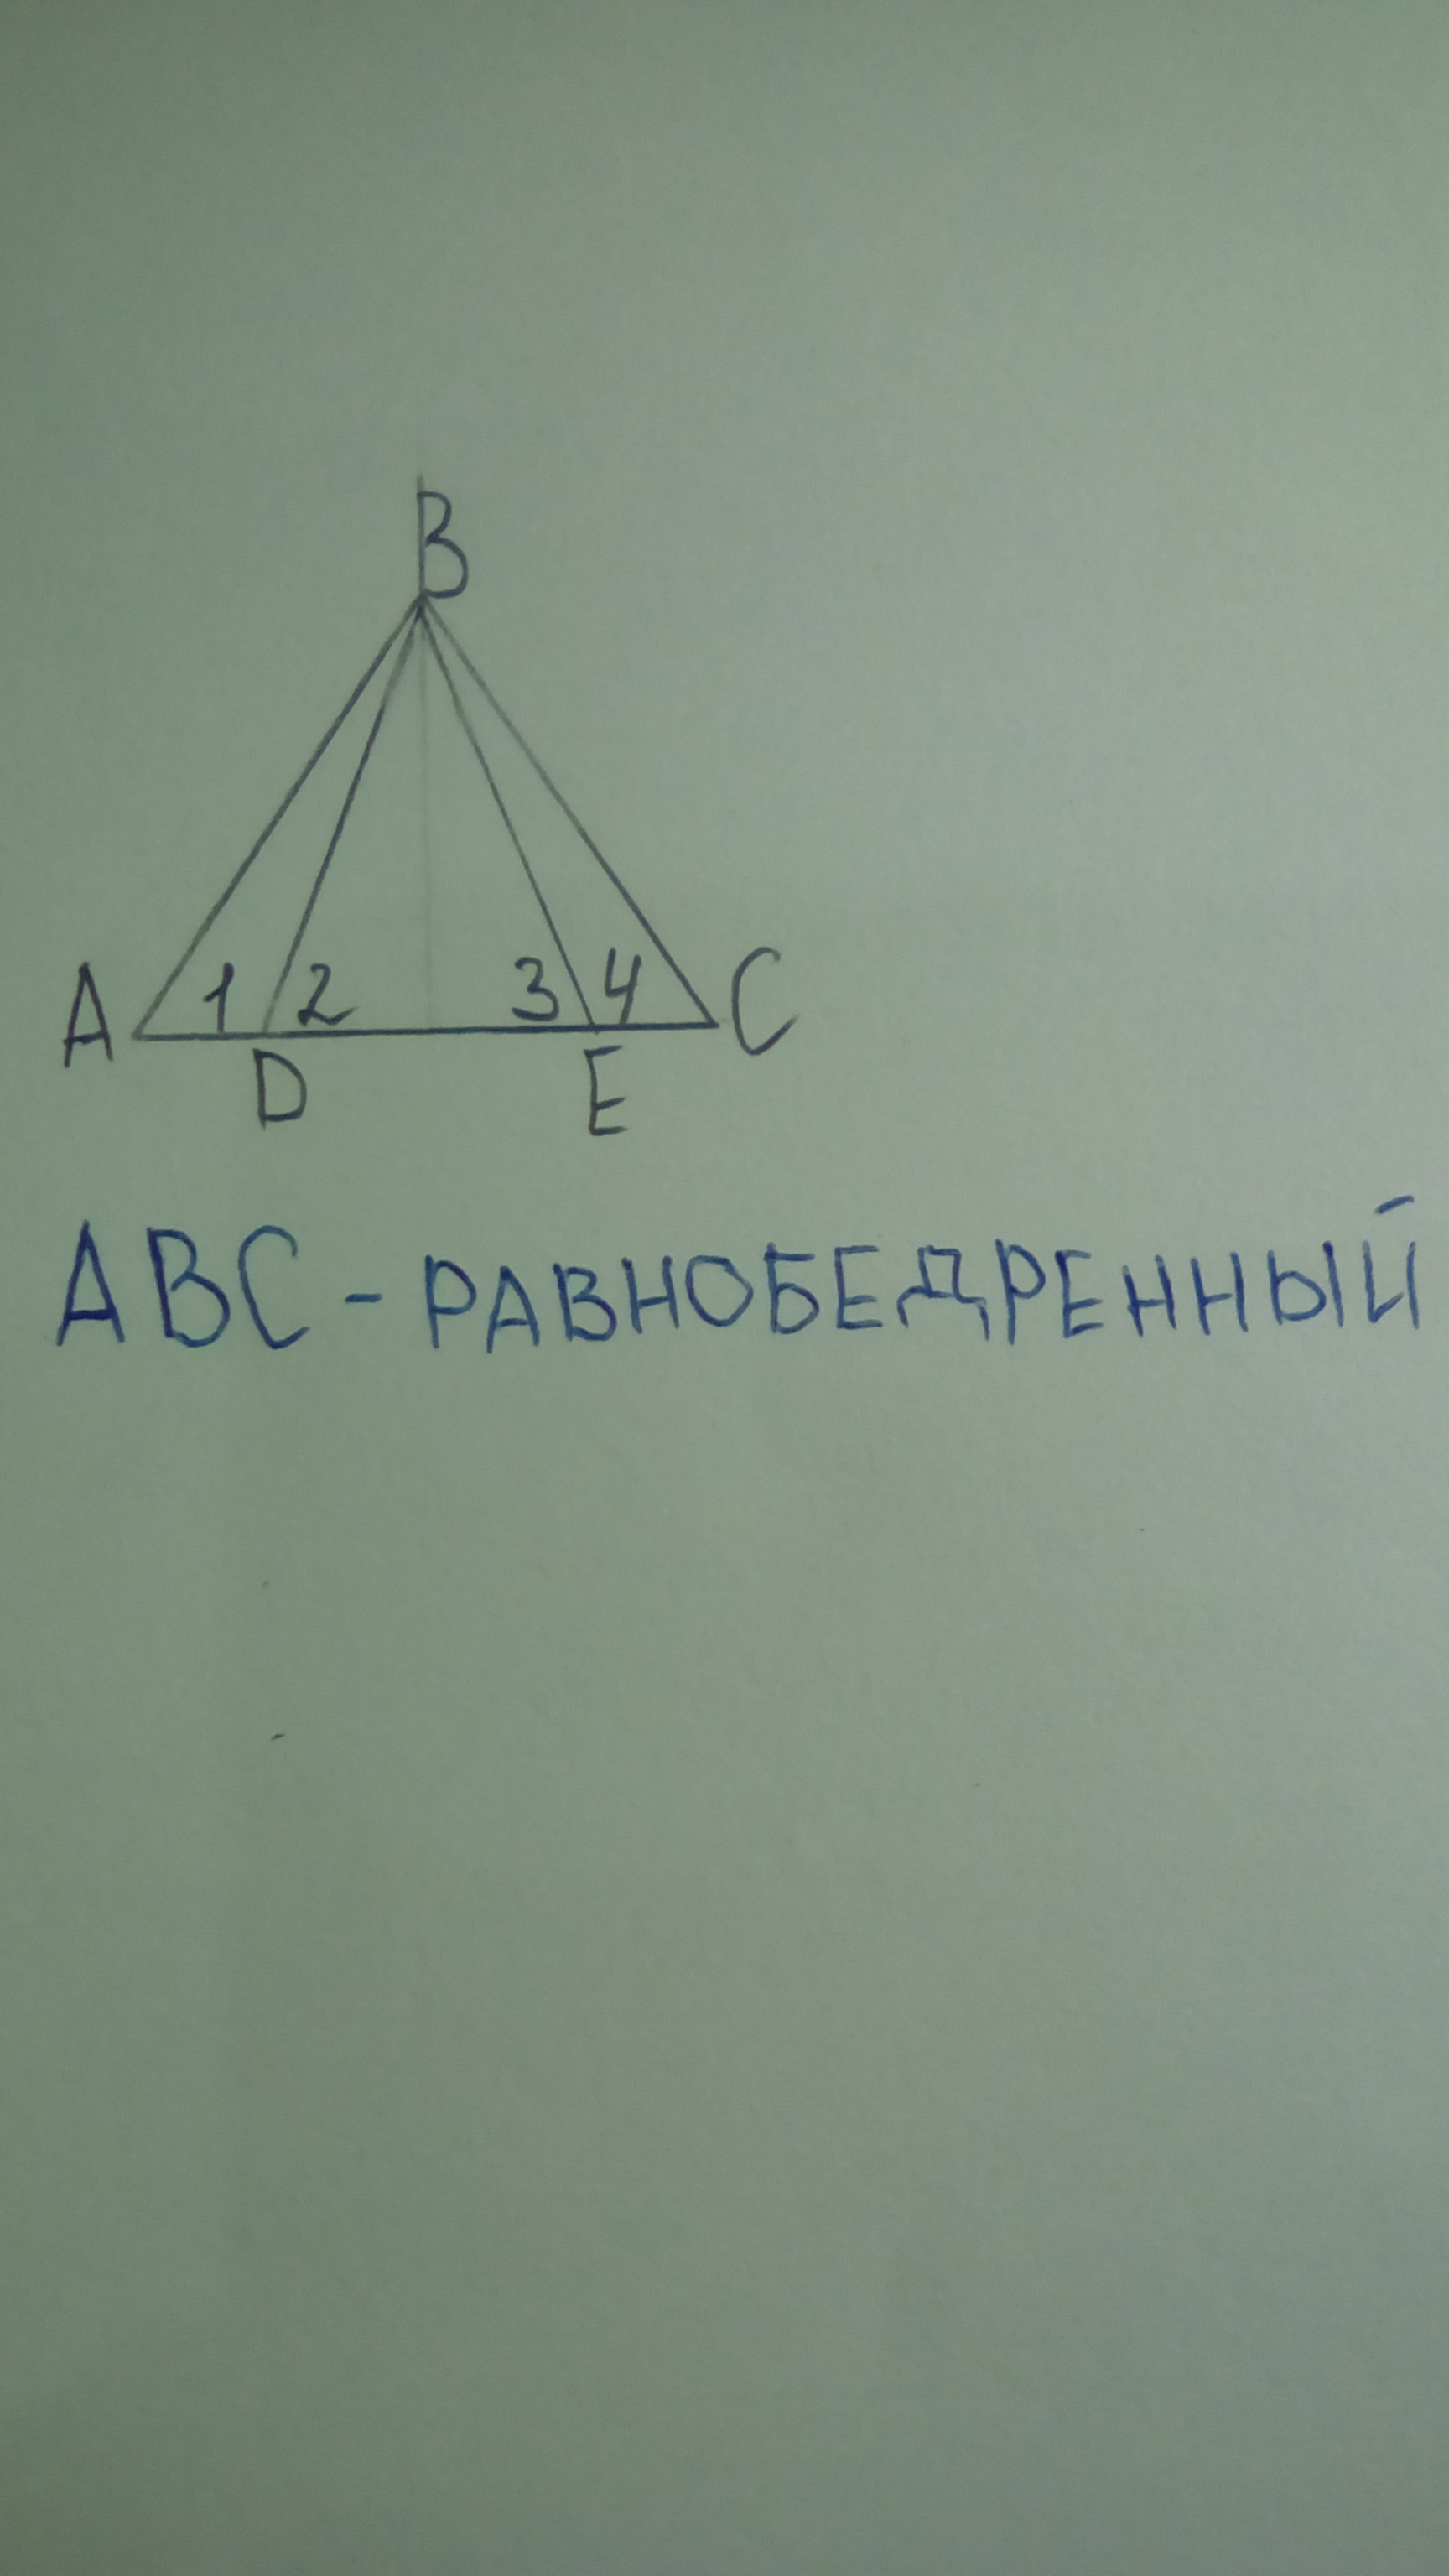 B
A 1 2 3 4 C
D E
ABC - РАВНОБЕДРЕННЫЙ